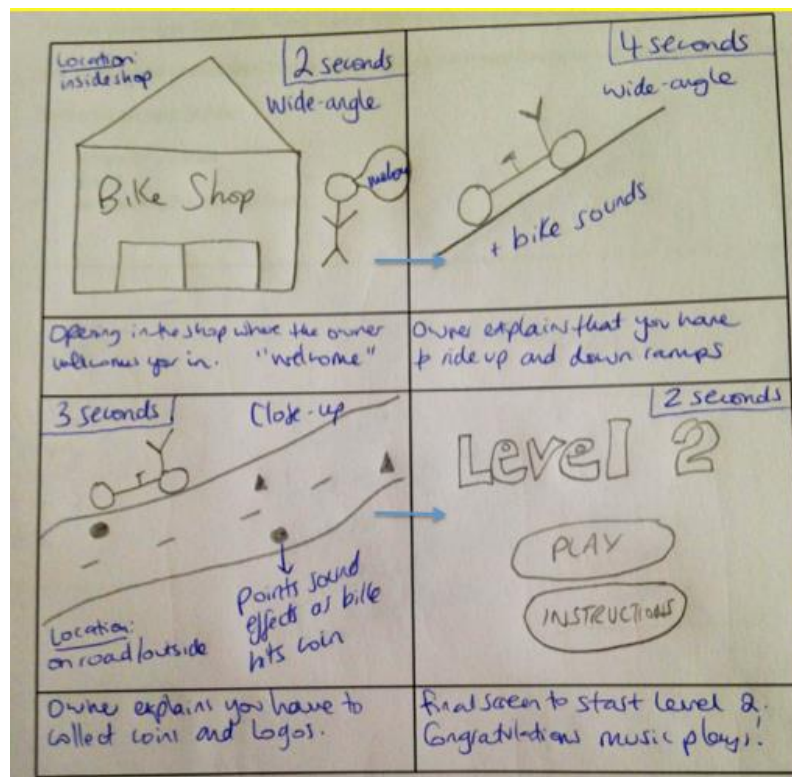 Location:
inside shop
2 seconds
Wide-angle
Bike Shop
Opening in the shop where the owner
welcomes you in. "welcome"
4 seconds
wide-angle
+ bike sounds
Owner explains that you have
to ride up and down ramps
3 seconds
Close-up
Points sound
effects as bike
hits coin
Location:
on road/outside
Owner explains you have to
collect coins and logos.
2 seconds
Level 2
PLAY
INSTRUCTIONS
final screen to start Level 2.
Congratulations music plays!